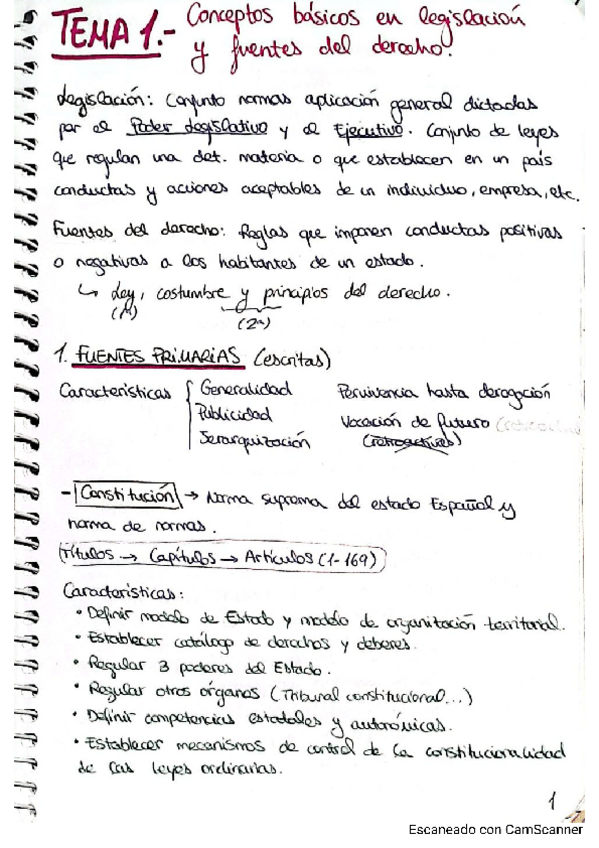 TEMA 1.- Conceptos básicos en legislación
y fuentes del derecho.
Legislación: Conjunto normas aplicación general dictadas
por el Poder Legislativo y el Ejecutivo. Conjunto de leyes
que regulan una det. materia o que establecen en un país
conductas y acciones aceptables de un individuo, empresa, etc.
Fuentes del derecho: Reglas que imponen conductas positivas
o negativas a los habitantes de un estado.
↳ Ley, costumbre y principios del derecho.
(1ª) (2ª)
1. FUENTES PRIMARIAS (escritas)
Características { Generalidad Pervivencia hasta derogación
Publicidad Vocación de futuro
Jerarquización (retroactivas)
- Constitución → Norma suprema del estado Español y
norma de normas.
(Títulos → Capítulos → Artículos (1-169)
Características:
• Definir modelo de Estado y modelo de organización territorial.
• Establecer catálogo de derechos y deberes.
• Regular 3 poderes del Estado.
• Regular otros órganos (Tribunal constitucional...)
• Definir competencias estatales y autonómicas.
• Establecer mecanismos de control de la constitucionalidad
de las leyes ordinarias.
1
Escaneado con CamScanner